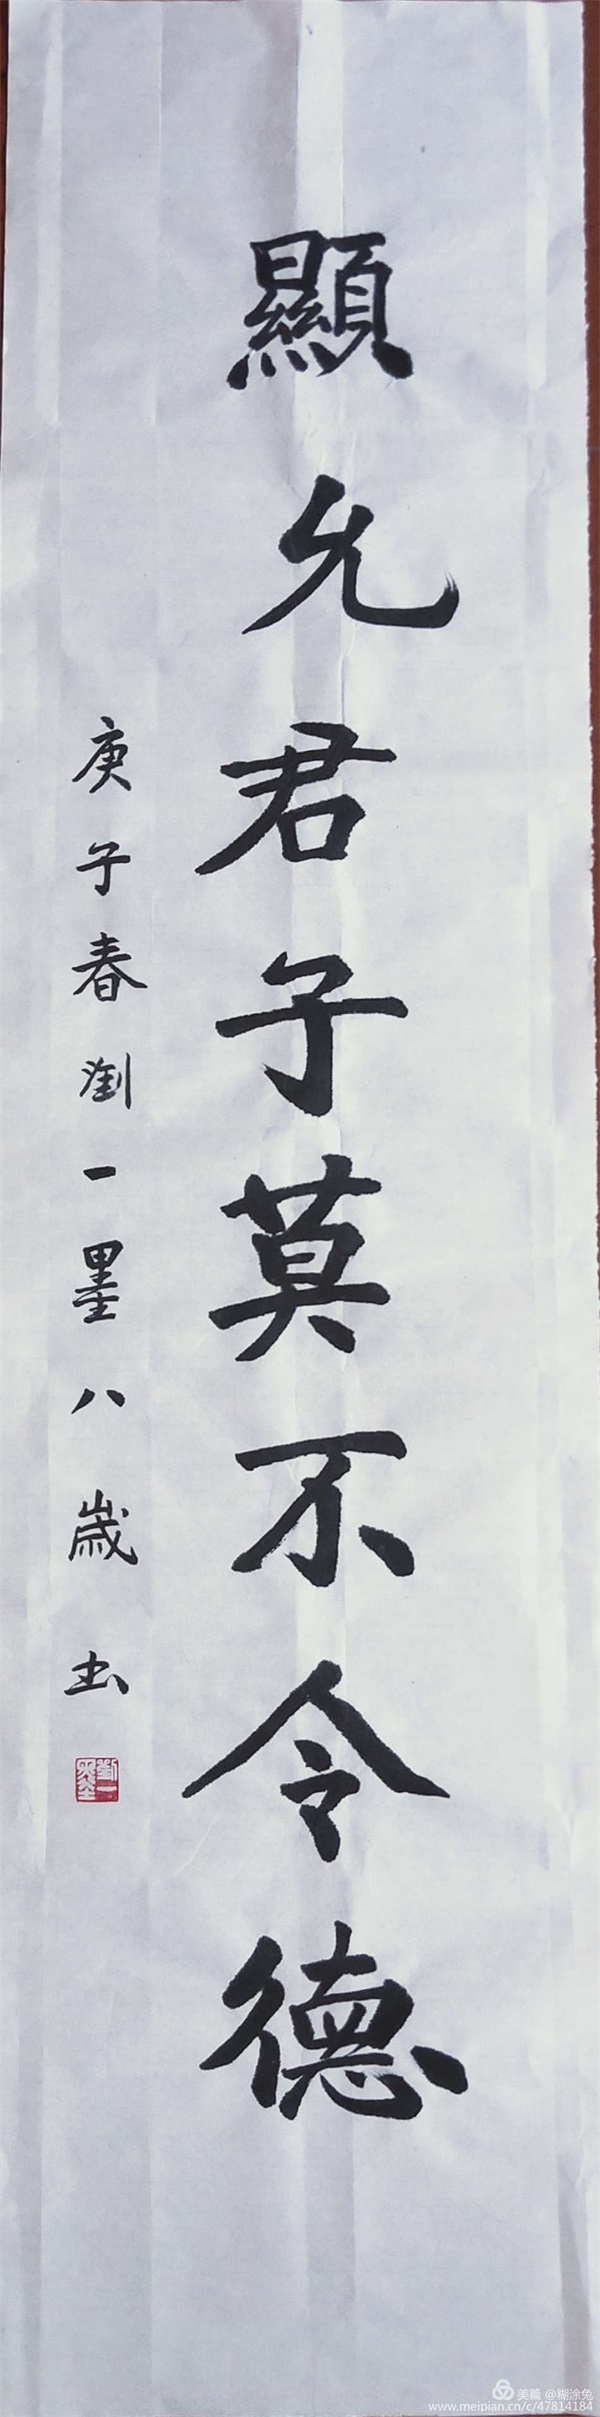 顯允君子莫不令德
庚子春劉一墨八歲书
劉一墨
美篇 @糊涂兔
www.meipian.cn/c/47814184